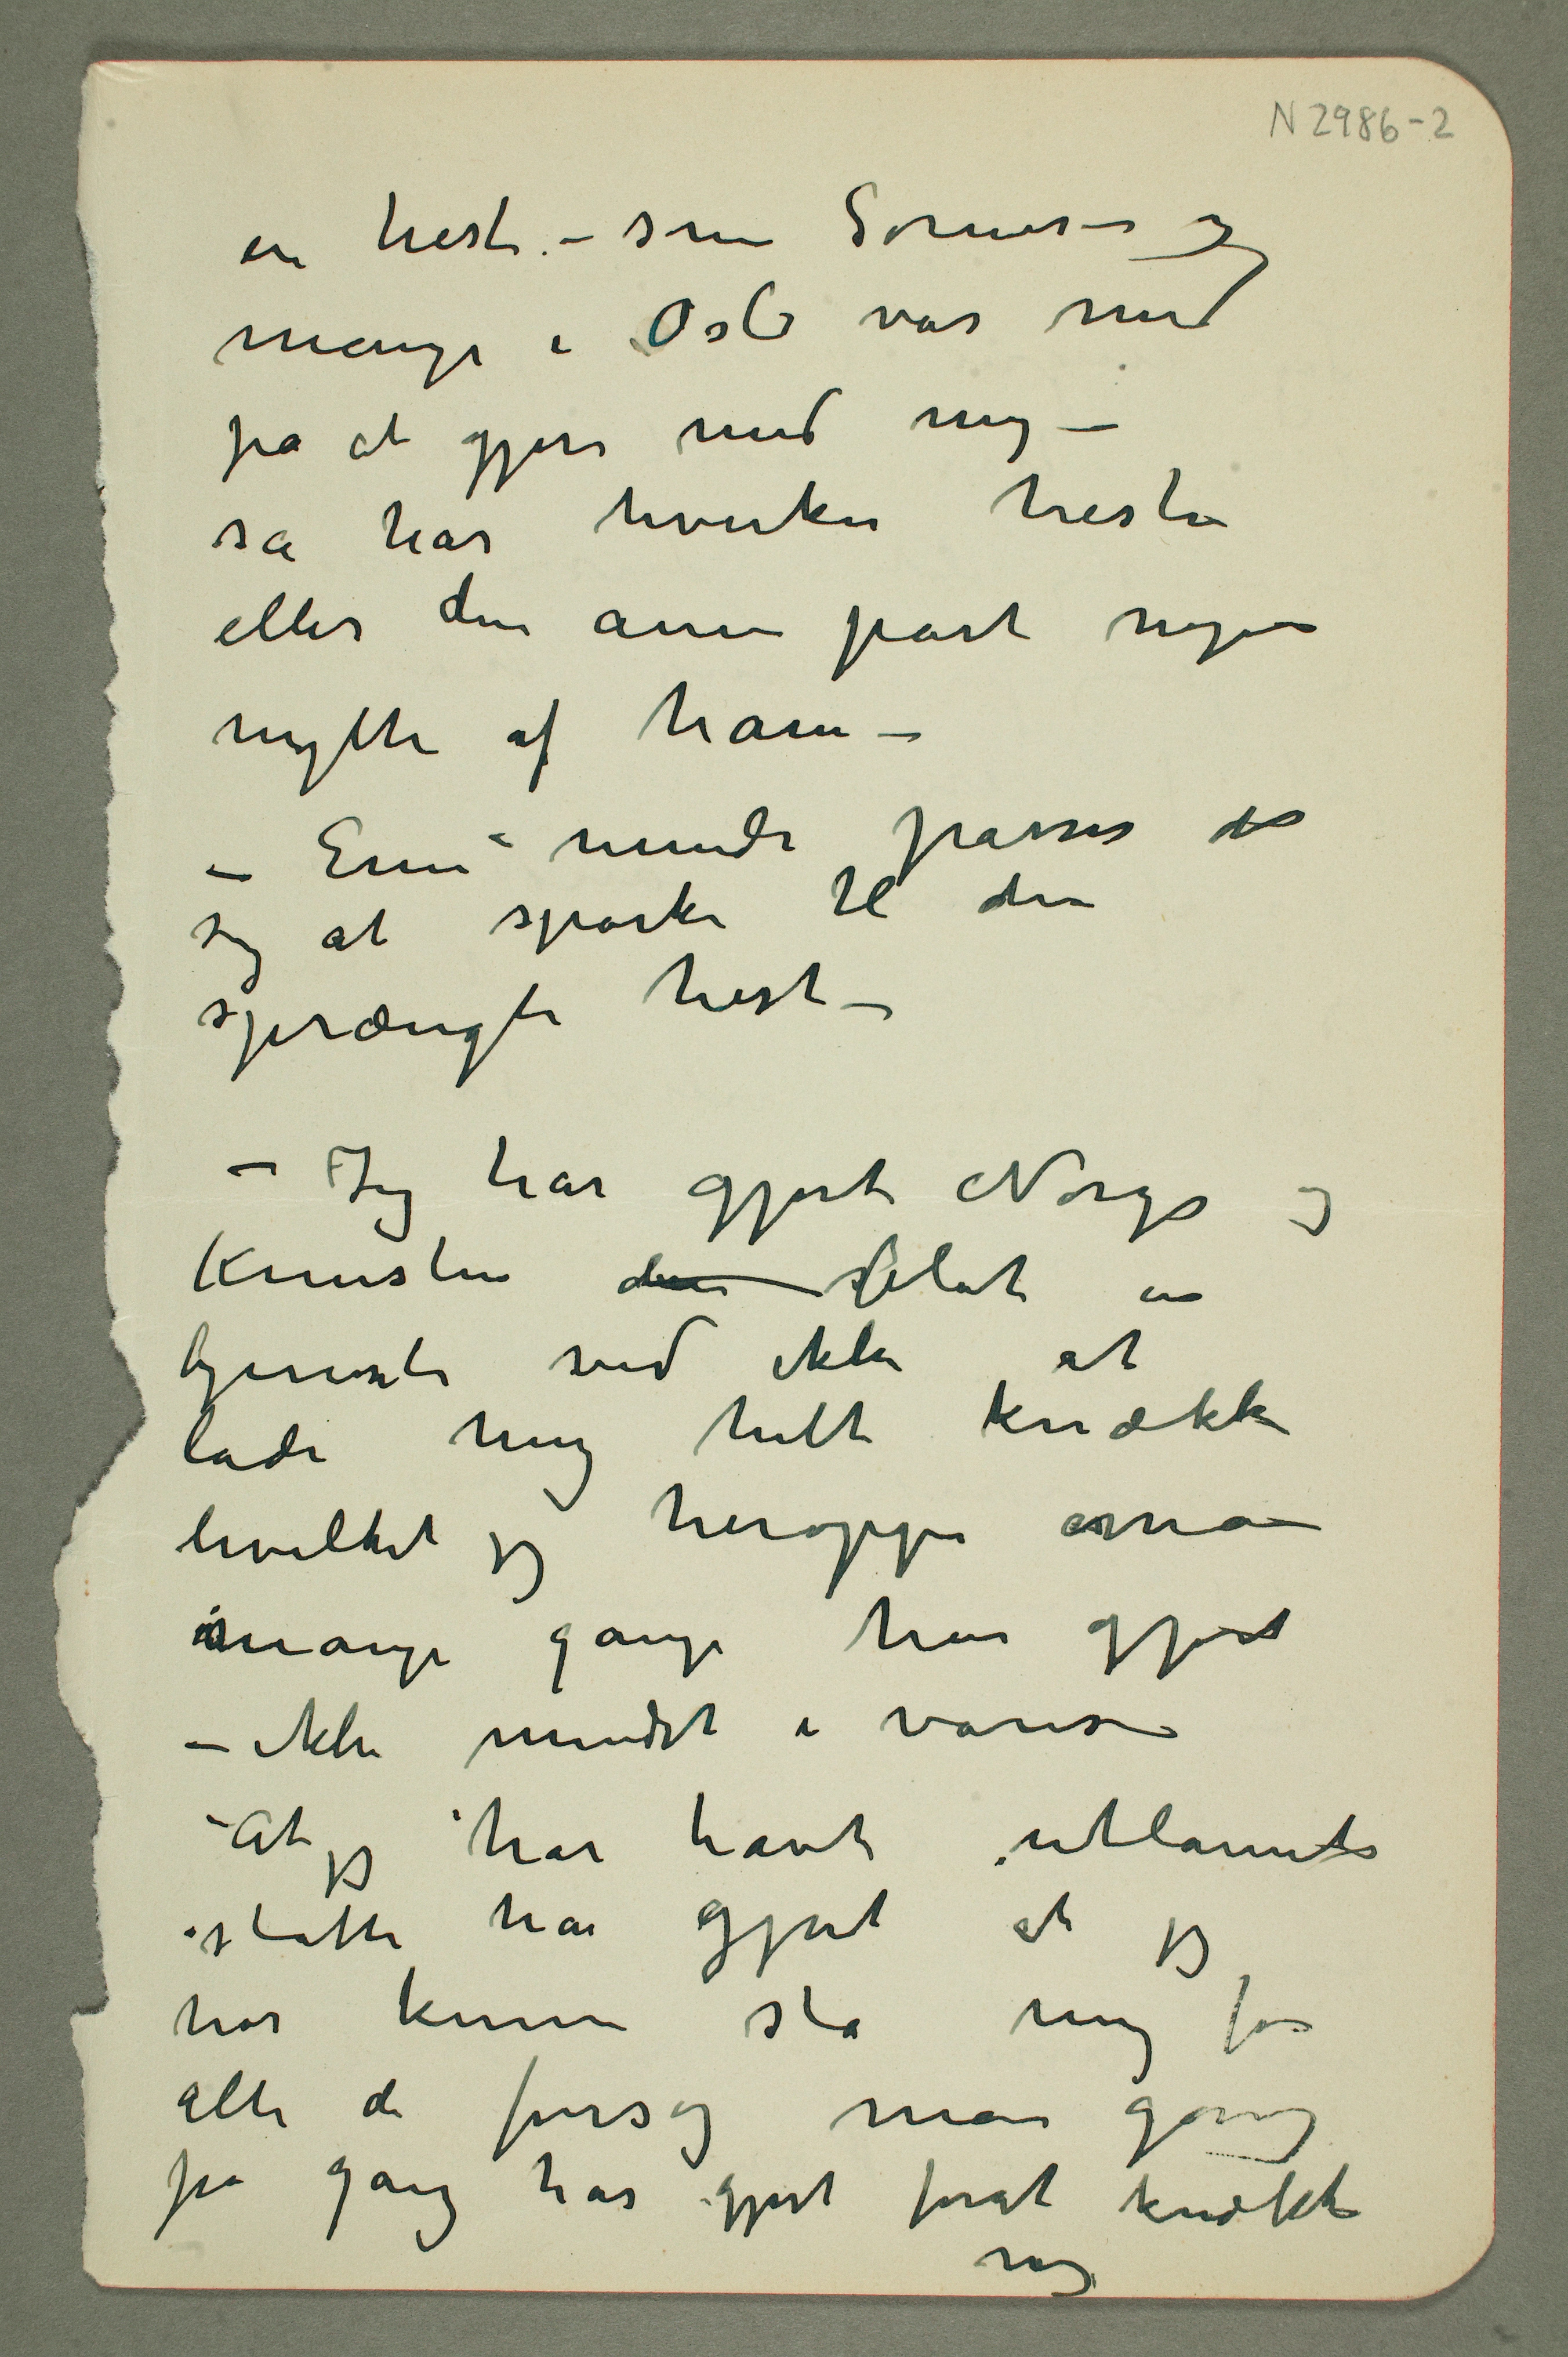 N 2986-2
en hest. – som Sørensen og
mange i Oslo var med
på at gjøre med mig –
så har hverken hesten
eller den anen part nogen
nytte af ham –
– Enu mindre passer det
sig at sparke til den
sprængte hest –
– Jeg har gjort Norge og
Kunsten den slet en
tjeneste ved ikke at
lade mig helt knække
hvilket jeg heroppe
mange gange har gjort
– ikke mindst i
– At jeg har havt utlannets
støtte har gjort at jeg
har kunne stå mig for
alle de forsøg man gang
på gang har gjort forat knække
mig